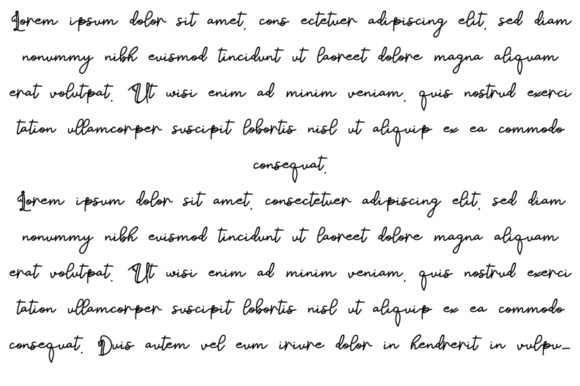 Lorem ipsum dolor sit amet, cons ectetuer adipiscing elit, sed diam
nonummy nibh euismod tincidunt ut laoreet dolore magna aliquam
erat volutpat. Ut wisi enim ad minim veniam, quis nostrud exerci
tation ullamcorper suscipit lobortis nisl ut aliquip ex ea commodo
consequat.
Lorem ipsum dolor sit amet, consectetuer adipiscing elit, sed diam
nonummy nibh euismod tincidunt ut laoreet dolore magna aliquam
erat volutpat. Ut wisi enim ad minim veniam, quis nostrud exerci
tation ullamcorper suscipit lobortis nisl ut aliquip ex ea commodo
consequat. Duis autem vel eum iriure dolor in hendrerit in vulpu-